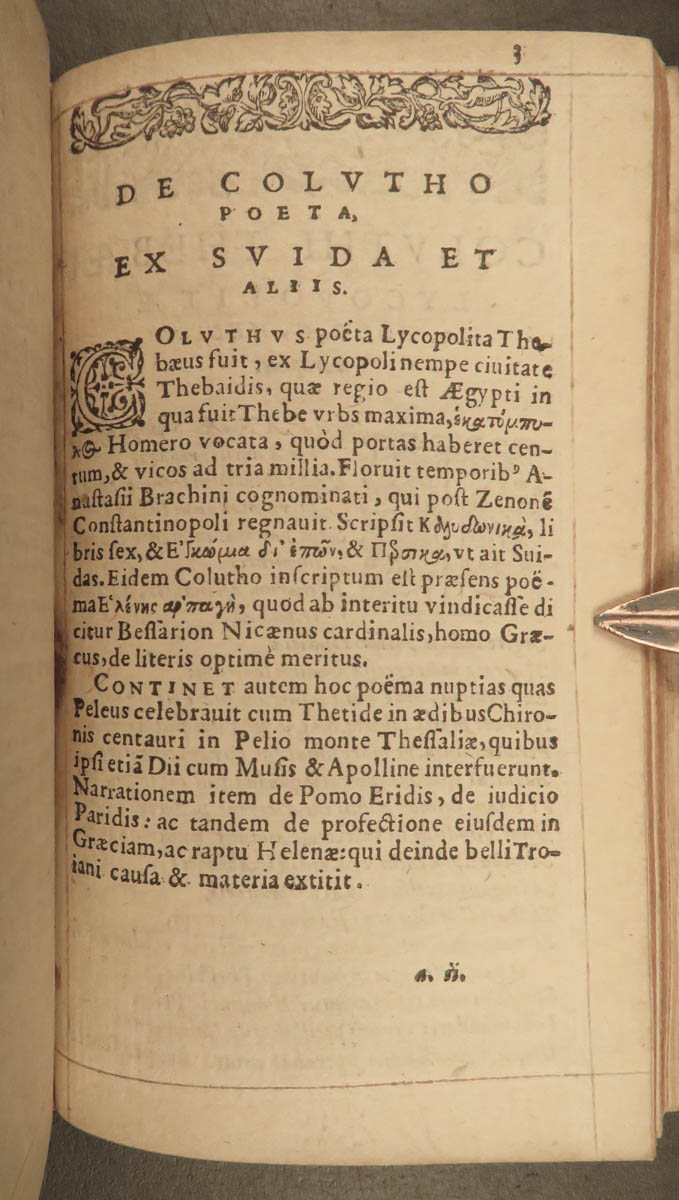 3
DE COLVTHO
POETA,
EX SVIDA ET
ALIIS.
COLVTHVS poëta Lycopolita The-
bæus fuit, ex Lycopoli nempe ciuitate
Thebaidis, quæ regio eſt Ægypti in
qua fuit Thebe vrbs maxima, ἑκατόμπυ-
λος Homero vocata, quòd portas haberet cen-
tum, & vicos ad tria millia. Floruit temporibꝰ A-
naſtaſii Brachini cognominati, qui poſt Zenonẽ
Conſtantinopoli regnauit. Scripſit Καλυδωνικὰ, li
bris ſex, & Ἐγκώμια δι' ἐπῶν, & Περσικα, vt ait Sui-
das. Eidem Colutho inſcriptum eſt præſens poë-
ma Ἑλένης ἁρπαγὴ, quod ab interitu vindicaſſe di
citur Beſſarion Nicænus cardinalis, homo Græ-
cus, de literis optimè meritus.
CONTINET autem hoc poëma nuptias quas
Peleus celebrauit cum Thetide in ædibus Chiro-
nis centauri in Pelio monte Theſſaliæ, quibus
ipſi etiã Dii cum Muſis & Apolline interfuerunt.
Narrationem item de Pomo Eridis, de iudicio
Paridis: ac tandem de profectione eiuſdem in
Græciam, ac raptu Helenæ: qui deinde belli Tro-
iani cauſa & materia extitit.
a. ii.